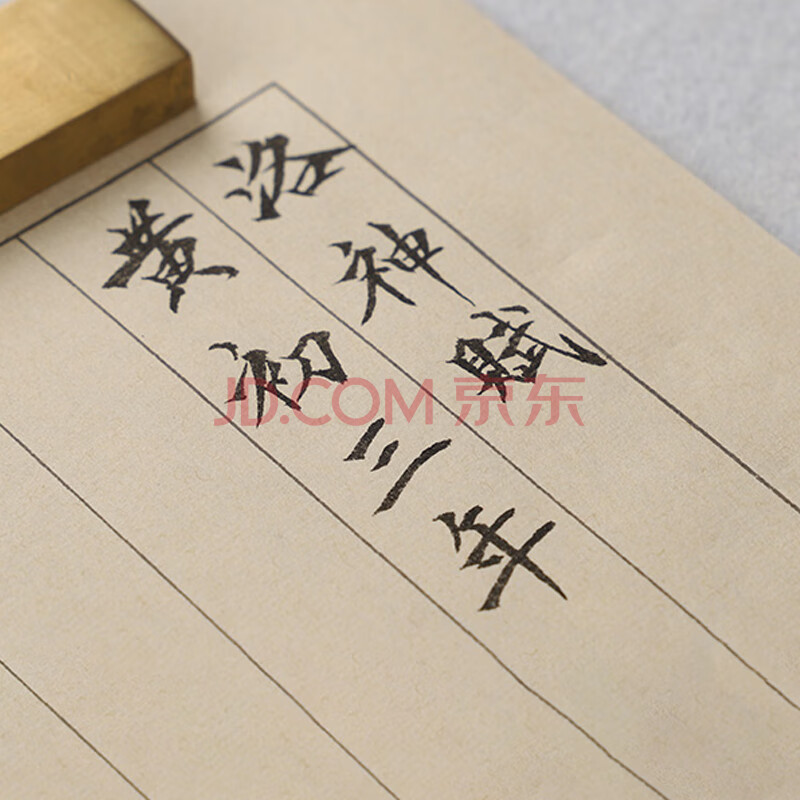 洛神赋
黄初三年
JD.COM 京东